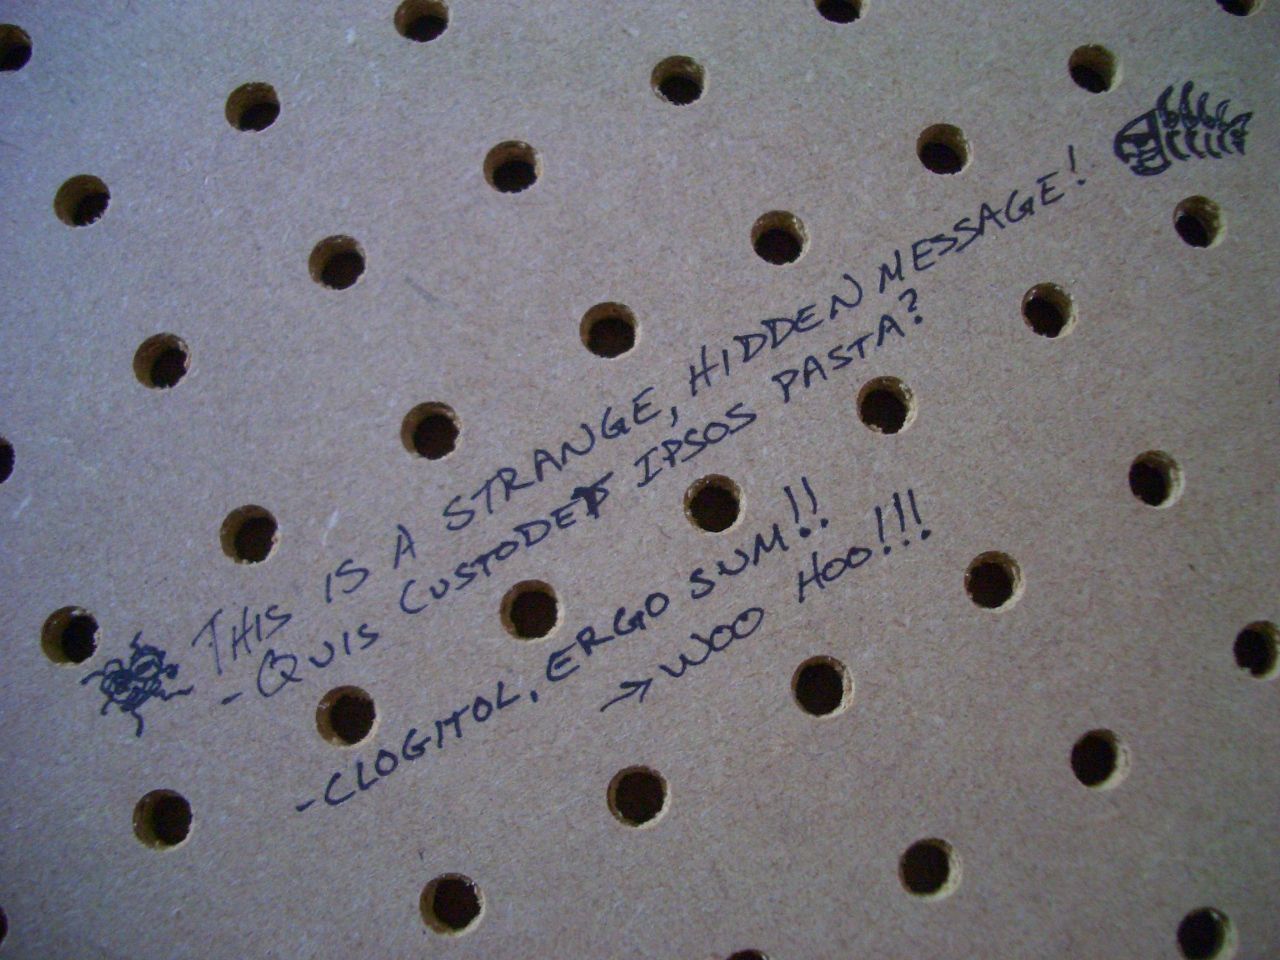 THIS IS A STRANGE, HIDDEN MESSAGE!
- QUIS CUSTODET IPSOS PASTA?
- CLOGITOL, ERGO SUM!!
→ WOO HOO!!!